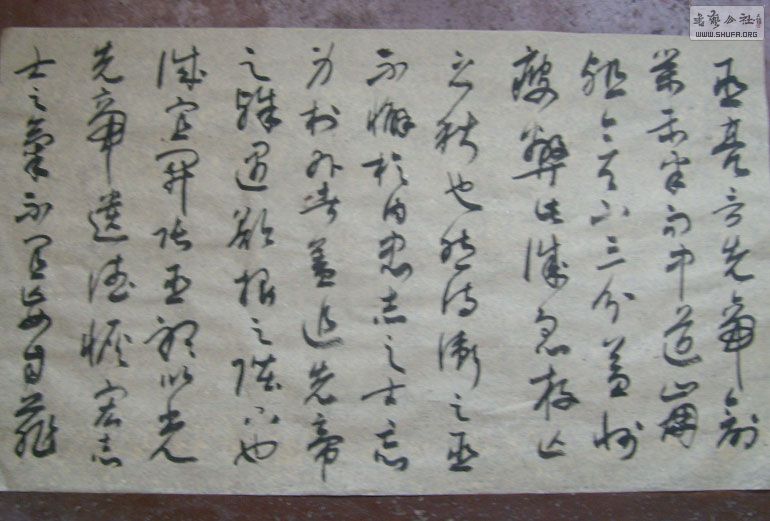 臣亮言先帝創
業未半而中道崩
殂今天下三分益州
疲弊此誠急存亡
之秋也然侍衛之臣
不懈於內忠志之士忘
身於外者蓋追先帝
之殊遇欲報之陛下也
誠宜開張聖聽以光
先帝遺德恢宏志
士之氣不宜妄自菲
书艺公社
WWW.SHUFA.ORG